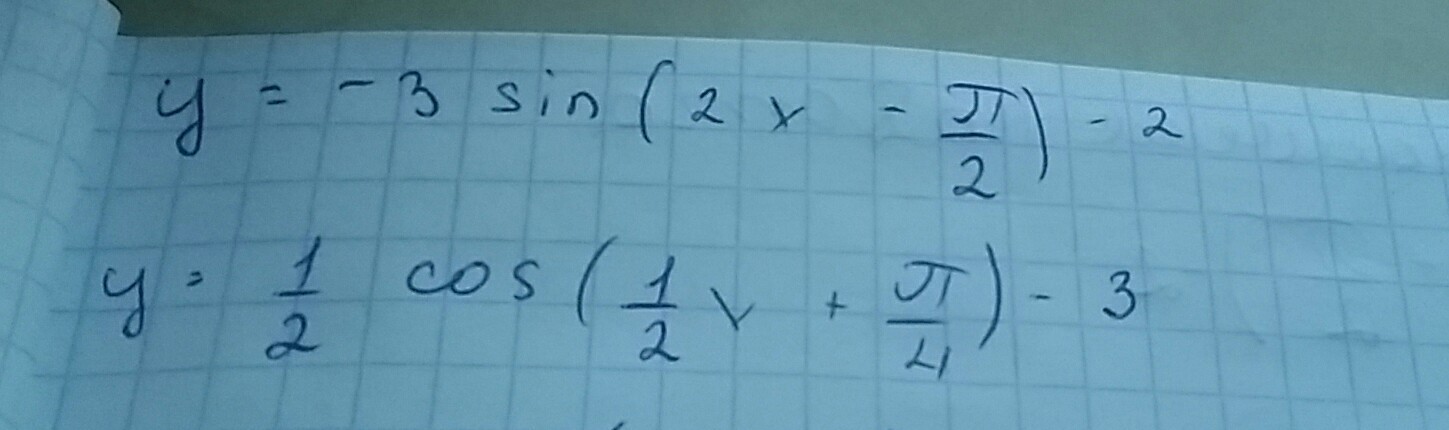 y = -3 sin(2x - π/2) - 2
y = 1/2 cos(1/2x + π/4) - 3